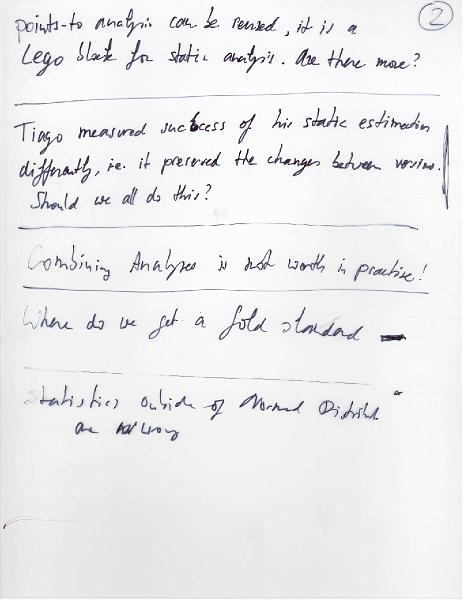 2
points-to analysis can be reused, it is a
Lego block for static analysis. Are there more?
Tiago measured success of his static estimation
differently, i.e. it preserved the changes between versions.
Should we all do this?
Combining Analyses is not worth in practise!
Where do we get a gold standard
Statistics outside of Normal
are wrong